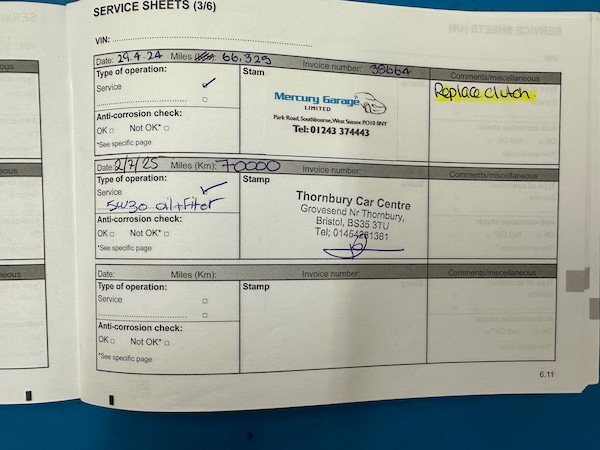 SERVICE SHEETS (3/6)
VIN:
Date: 29.4.24 Miles 66,329 Invoice number: 38664 Comments/miscellaneous
Type of operation: Stamp
Service ✓
Replace clutch.
Mercury Garage
LIMITED
Park Road, Southbourne, West Sussex PO10 8NY
Tel: 01243 374443
Anti-corrosion check:
OK □ Not OK* □
*See specific page
Date: 2/7/25 Miles (Km): 70000 Invoice number: Comments/miscellaneous
Type of operation: Stamp
Service ✓
5W30 oil+filter
Thornbury Car Centre
Grovesend Nr Thornbury,
Bristol, BS35 3TU
Tel; 01454281381
Anti-corrosion check:
OK □ Not OK* □
*See specific page
Date: Miles (Km): Invoice number: Comments/miscellaneous
Type of operation: Stamp
Service □
□
Anti-corrosion check:
OK □ Not OK* □
*See specific page
6.11